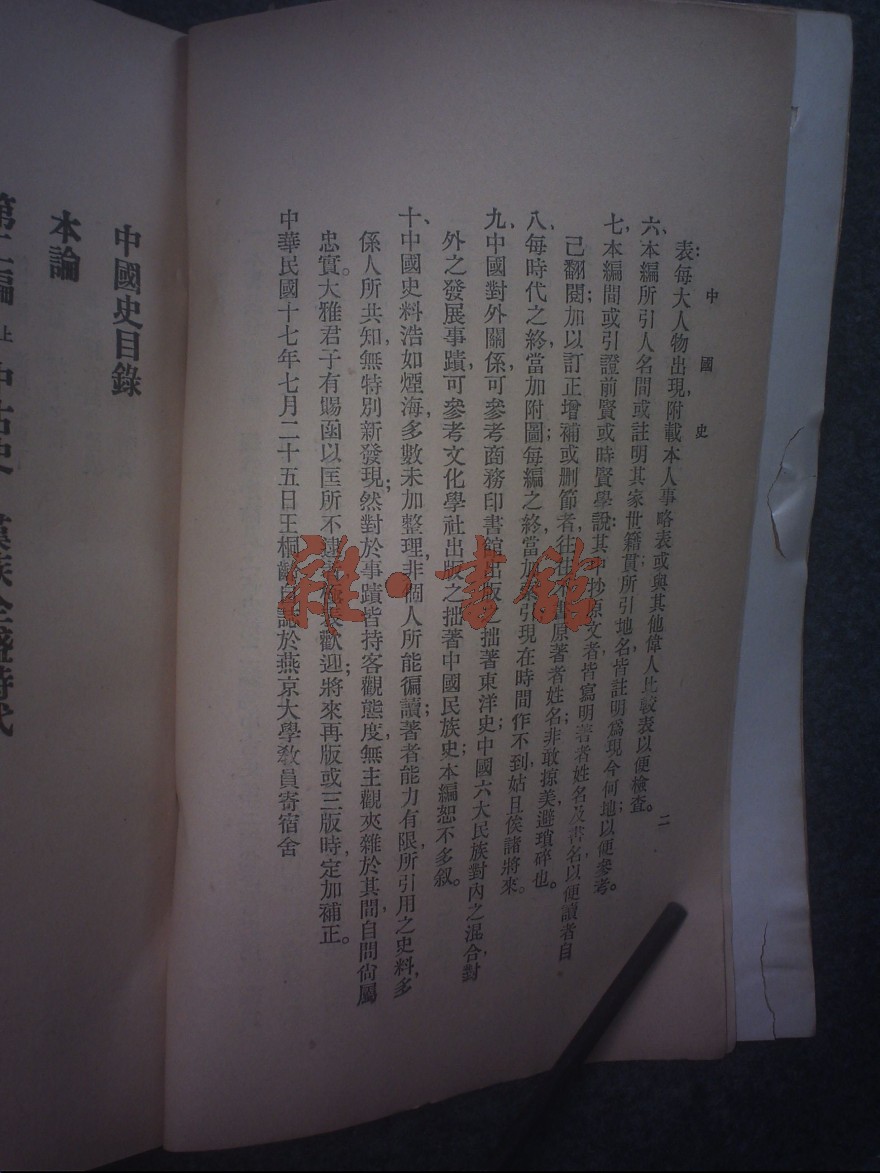 中國史
二
表：每大人物出現，附載本人事略表或與其他偉人比較表以便檢查。
六、本編所引人名間或註明其家世籍貫所引地名皆註明爲現今何地以便參考。
七、本編間或引證前賢或時賢學說：其抄原文者，皆寫明著者姓名及書名以便讀者自
己翻閱；加以訂正增補或刪節者，往往原著者姓名非敢掠美避瑣碎也。
八、每時代之終當加附圖；每編之終，當加引；現在時間作不到，姑且俟諸將來。
九、中國對外關係，可參考商務印書館出版之拙著東洋史；中國六大民族對內之混合對
外之發展事蹟，可參考文化學社出版之拙著中國民族史；本編恕不多叙。
十、中國史料浩如煙海，多數未加整理，非個人所能徧讀；著者能力有限，所引用之史料，多
係人所共知，無特別新發現；然對於事蹟皆持客觀態度，無主觀夾雜於其間，自問尙屬
忠實。大雅君子有賜函以匡所不逮者，歡迎；將來再版或三版時，定加補正。
中華民國十七年七月二十五日王桐齡自誌於燕京大學敎員寄宿舍
中國史目錄
本論
第二編上 中古史 漢族全盛時代
雜·書館